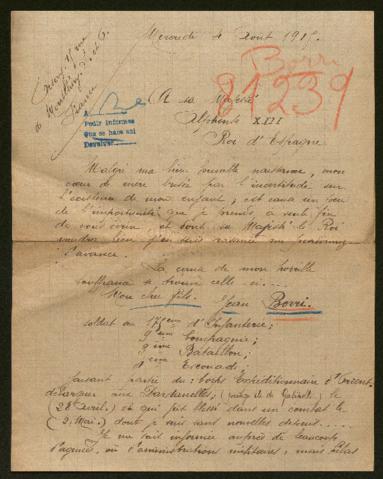 Mercredi 4 Août 1915.
Borri
81239
A
Pedir informes
Que se haga asi
Devolver
A sa Majesté
Alphonse XIII
Roi d'Espagne
Malgré ma bien humble naissance, mon
cœur de mère brisée par l'incertitude sur
l'existence de mon enfant, est cause
de l'importunité que je prends
et dont sa Majesté le Roi
voudra bien j'en suis
d'avance.
La cause de mon horrible
souffrance se trouve celle-ci....
Mon cher fils. Jean Borri.
soldat au 175ème d'Infanterie;
Compagnie;
Bataillon;
Escouade
faisant partie du: Corps Expéditionnaire d'Orient.
débarqué aux Dardanelles; le
(28 avril.) et qui fut blessé dans un combat le
(2 Mai.) dont je suis sans nouvelles depuis.....
Je me suis informée auprès de beaucoup
d'agences, ou d'administration militaire, mais hélas